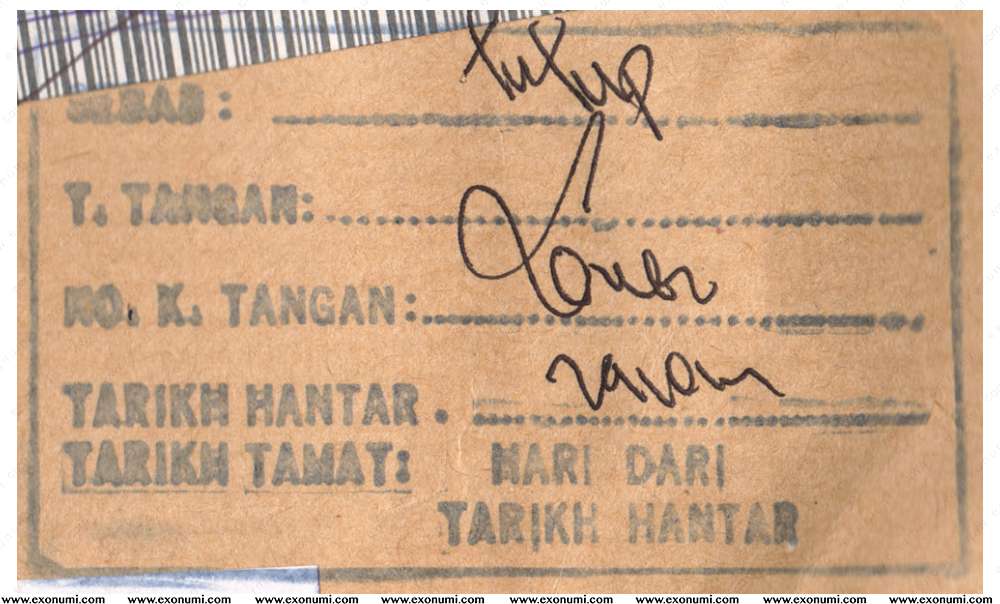 SEBAB: tutup
T. TANGAN:
NO. K. TANGAN:
TARIKH HANTAR.
TARIKH TAMAT: HARI DARI
TARIKH HANTAR
www.exonumi.com www.exonumi.com www.exonumi.com www.exonumi.com www.exonumi.com www.exonumi.com www.exonumi.com www.exonumi.com